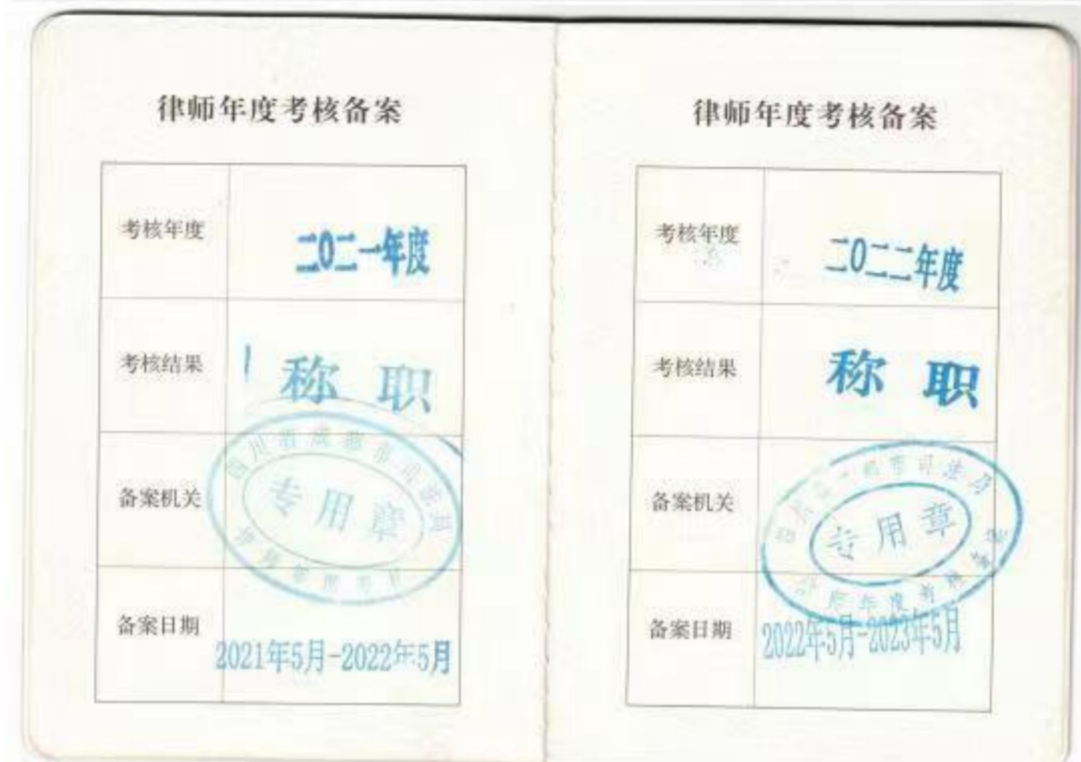 律师年度考核备案
考核年度
二〇二一年度
考核结果
称职
备案机关
四川省成都市司法局
专用章
备案日期
2021年5月-2022年5月
律师年度考核备案
考核年度
二〇二二年度
考核结果
称职
备案机关
都市司法局
专用章
律师年度考核备案
备案日期
2022年5月-2023年5月